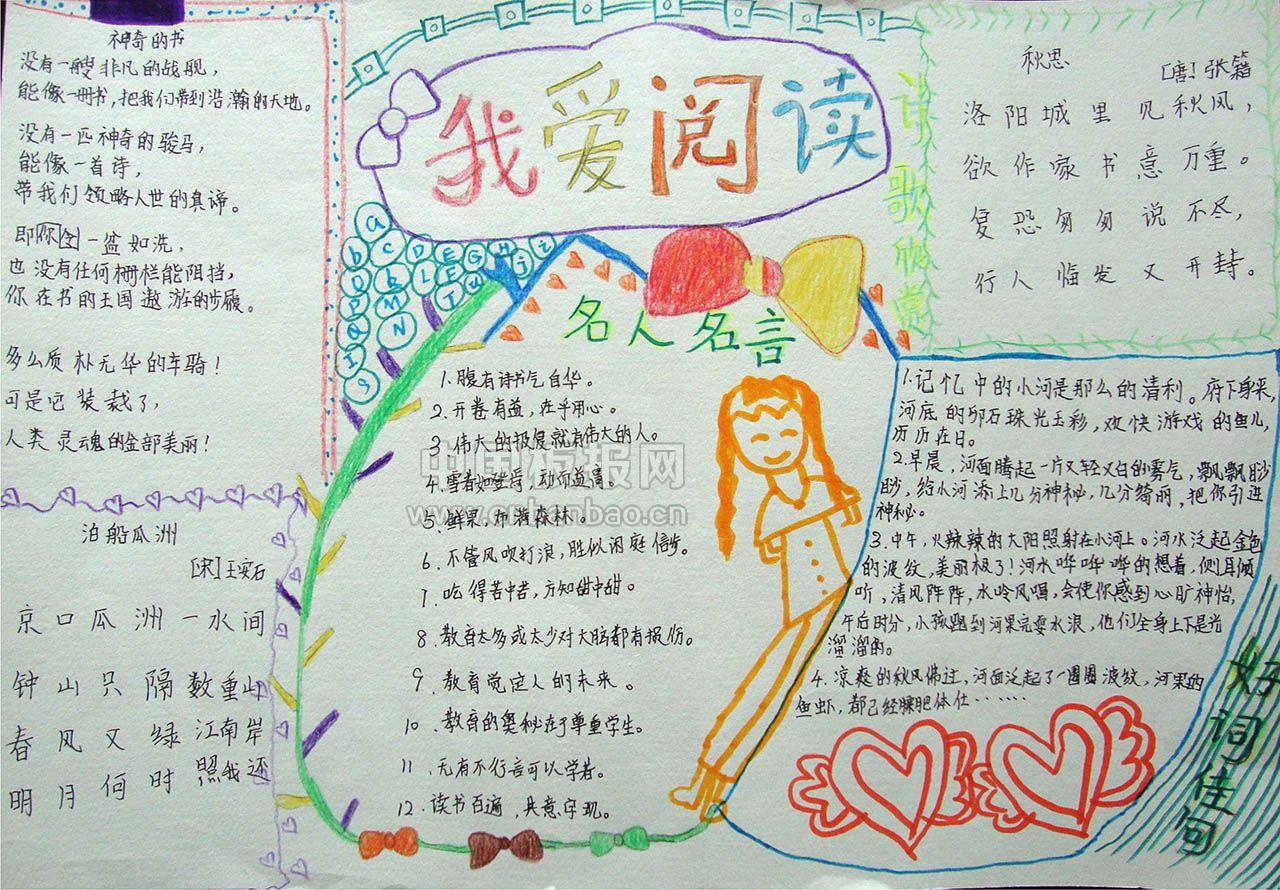 我爱阅读
神奇的书
没有一艘非凡的战舰，
能像一册书，把我们带到浩瀚的天地。
没有一匹神奇的骏马，
能像一首诗，
带我们领略人世的真谛。
一盆如洗，
也没有任何栅栏能阻挡，
你在书的王国遨游的步履。
多么质朴无华的车骑！
可是它装载了，
人类灵魂的全部美丽！
泊船瓜洲
[宋]王安石
京口瓜洲一水间
钟山只隔数重山
春风又绿江南岸
明月何时照我还
a
b c D E G H i
L F
M
N
名人名言
1.腹有诗书气自华。
2.开卷有益，在乎用心。
3.伟大的极是就有伟大的人。
4.
5.鲜果，布满森林。
6.不管风吹打浪，胜似闲庭信步。
7.吃得苦中苦，方知甜中甜。
8.教育太多或太少对大脑都有报伤。
9.教育觉定人的未来。
10.教育的奥秘在于尊重学生。
11.无有不行言可以学者。
12.读书百遍，其意字现。
中国板报网
诗歌欣赏
秋思
[唐]张籍
洛阳城里见秋风，
欲作家书意万重。
复恐匆匆说不尽，
行人临发又开封。
1.记忆中的小河是那么的清利。府下身来，
河底的卵石珠光玉彩，欢快游戏的鱼儿，
历历在日。
2.早晨，河面腾起一片又轻又白的雾气，飘飘眇
眇，给小河添上几分神秘，几分绮丽，把你引进
神秘。
3.中午，火辣辣的大阳照射在小河上。河水泛起金色
的波纹，美丽极了！河水哗哗哗的想着，侧耳倾
听，清风阵阵，水吟风唱，会使你感到心旷神怡，
午后时分，小孩跑到河果完耍水浪，他们全身上下是光
溜溜的。
4.凉爽的秋风佛过，河面泛起了一圈圈波纹，河果的
鱼虾，都已经膘肥体仕……
好词佳句